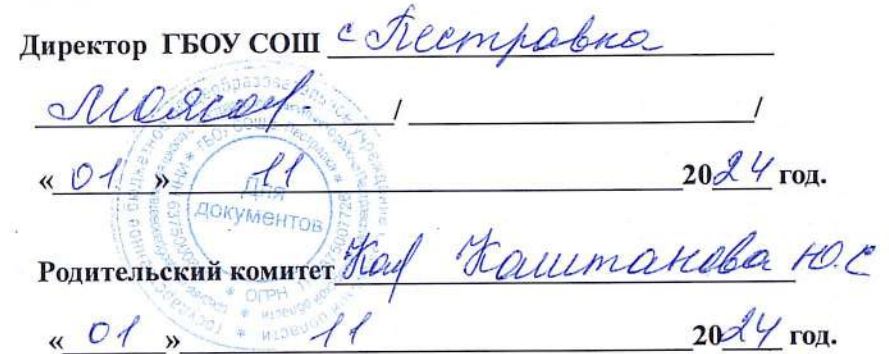 Директор ГБОУ СОШ с Пестравка
/ /
« 01 » 11 2024 год.
Для
документов
Родительский комитет Каштанова Ю.С
« 01 » 11 2024 год.